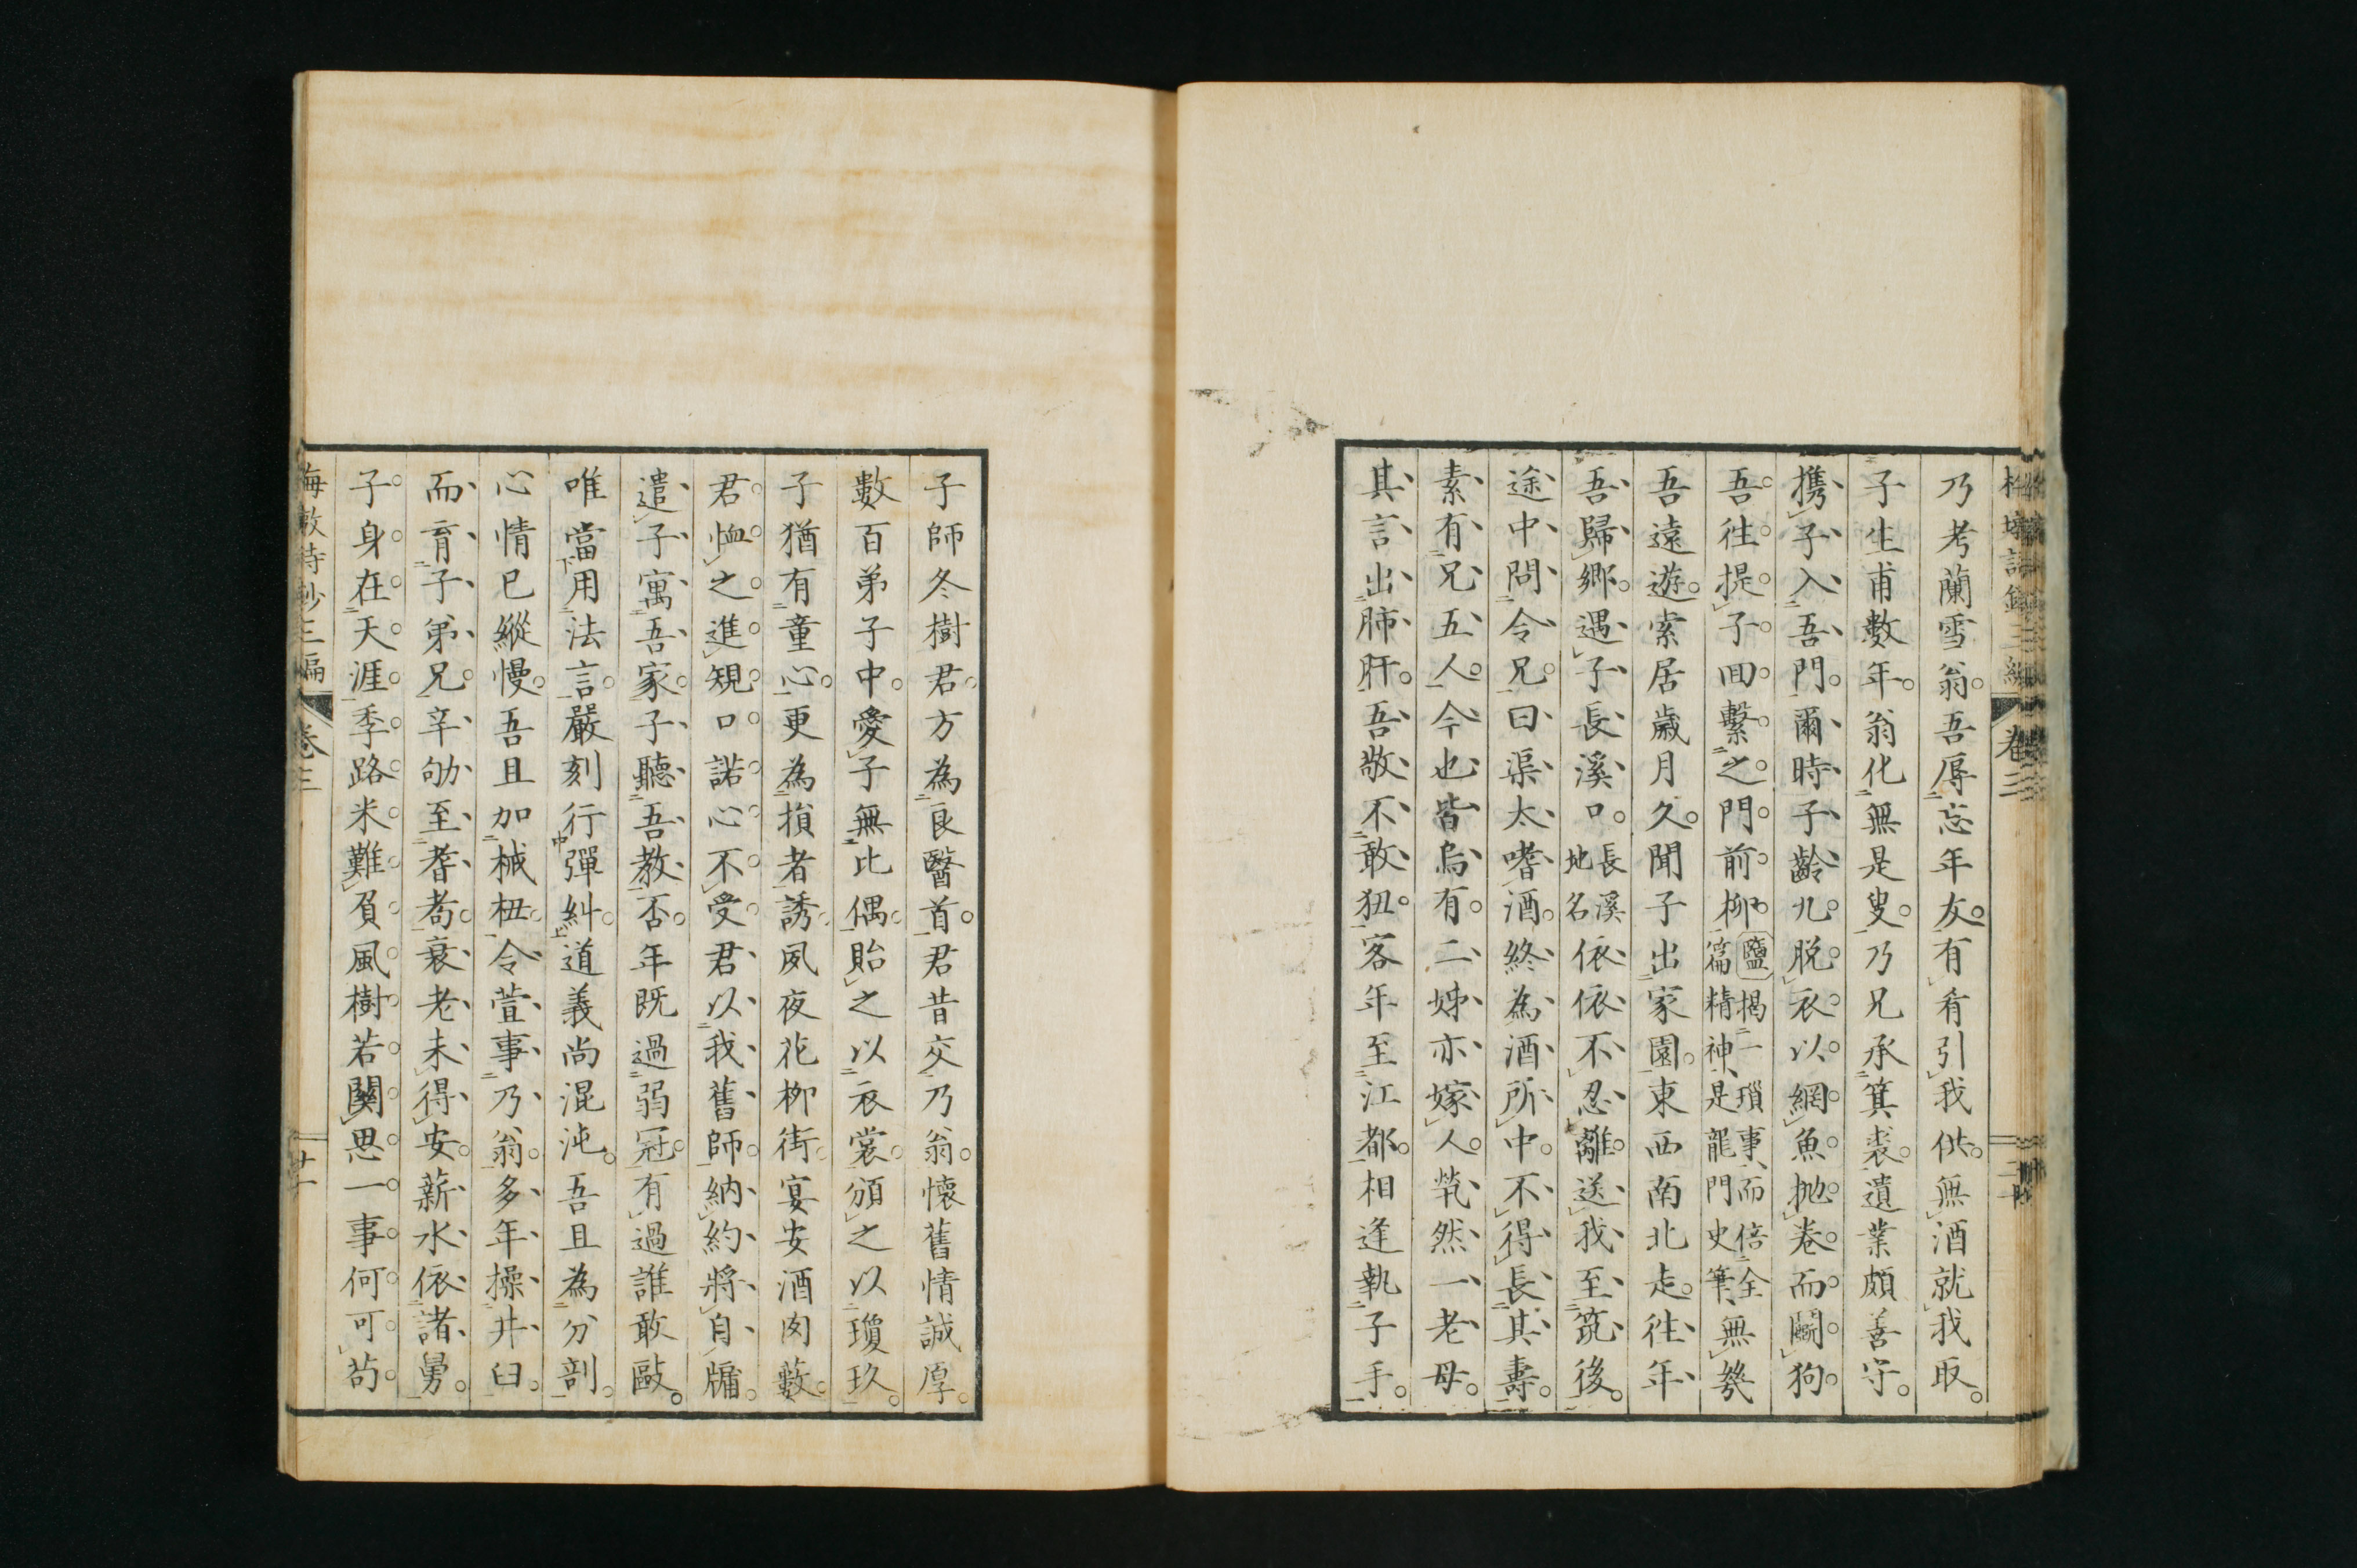 乃考蘭雪翁。吾辱忘年友。有肴引我供。無酒就我取。
子生甫數年。翁化無是叟。乃兄承箕裘。遺業頗善守。
携子入吾門。爾時子齡九。脱衣以網魚。抛卷而鬬狗。
吾往提子回。繫之門前柳。鹽揭一瑣事、而倍全篇精神、是龍門史筆、無幾
吾遠遊。索居歲月久。聞子出家園。東西南北走。往年
吾歸鄉。遇子長溪口。長溪地名依依不忍離。送我至筑後。
途中問令兄。曰渠太嗜酒。終為酒所中。不得長其壽。
素有兄五人。今也皆烏有。二姊亦嫁人。煢然一老母。
其言出肺肝。吾敬不敢狃。客年至江都。相逢執子手。
子師冬樹君。方為良醫首。君昔交乃翁。懷舊情誠厚。
數百弟子中。愛子無比偶。貽之以衣裳。頒之以瓊玖。
子猶有童心。更為損者誘。夙夜花柳街。宴安酒肉藪。
君恤之進規。口諾心不受。君以我舊師。納約將自牖。
遣子寓吾家。子聽吾教否。年既過弱冠。有過誰敢毆。
唯當用法言。嚴刻行彈糾。道義尚混沌。吾且為分剖。
心情已縱慢。吾且加械杻。令萱事乃翁。多年操井臼。
而育子弟兄。辛劬至耆耇。衰老未得安。薪水依諸舅。
子身在天涯。季路米難負。風樹若關思。一事何可苟。
卷三